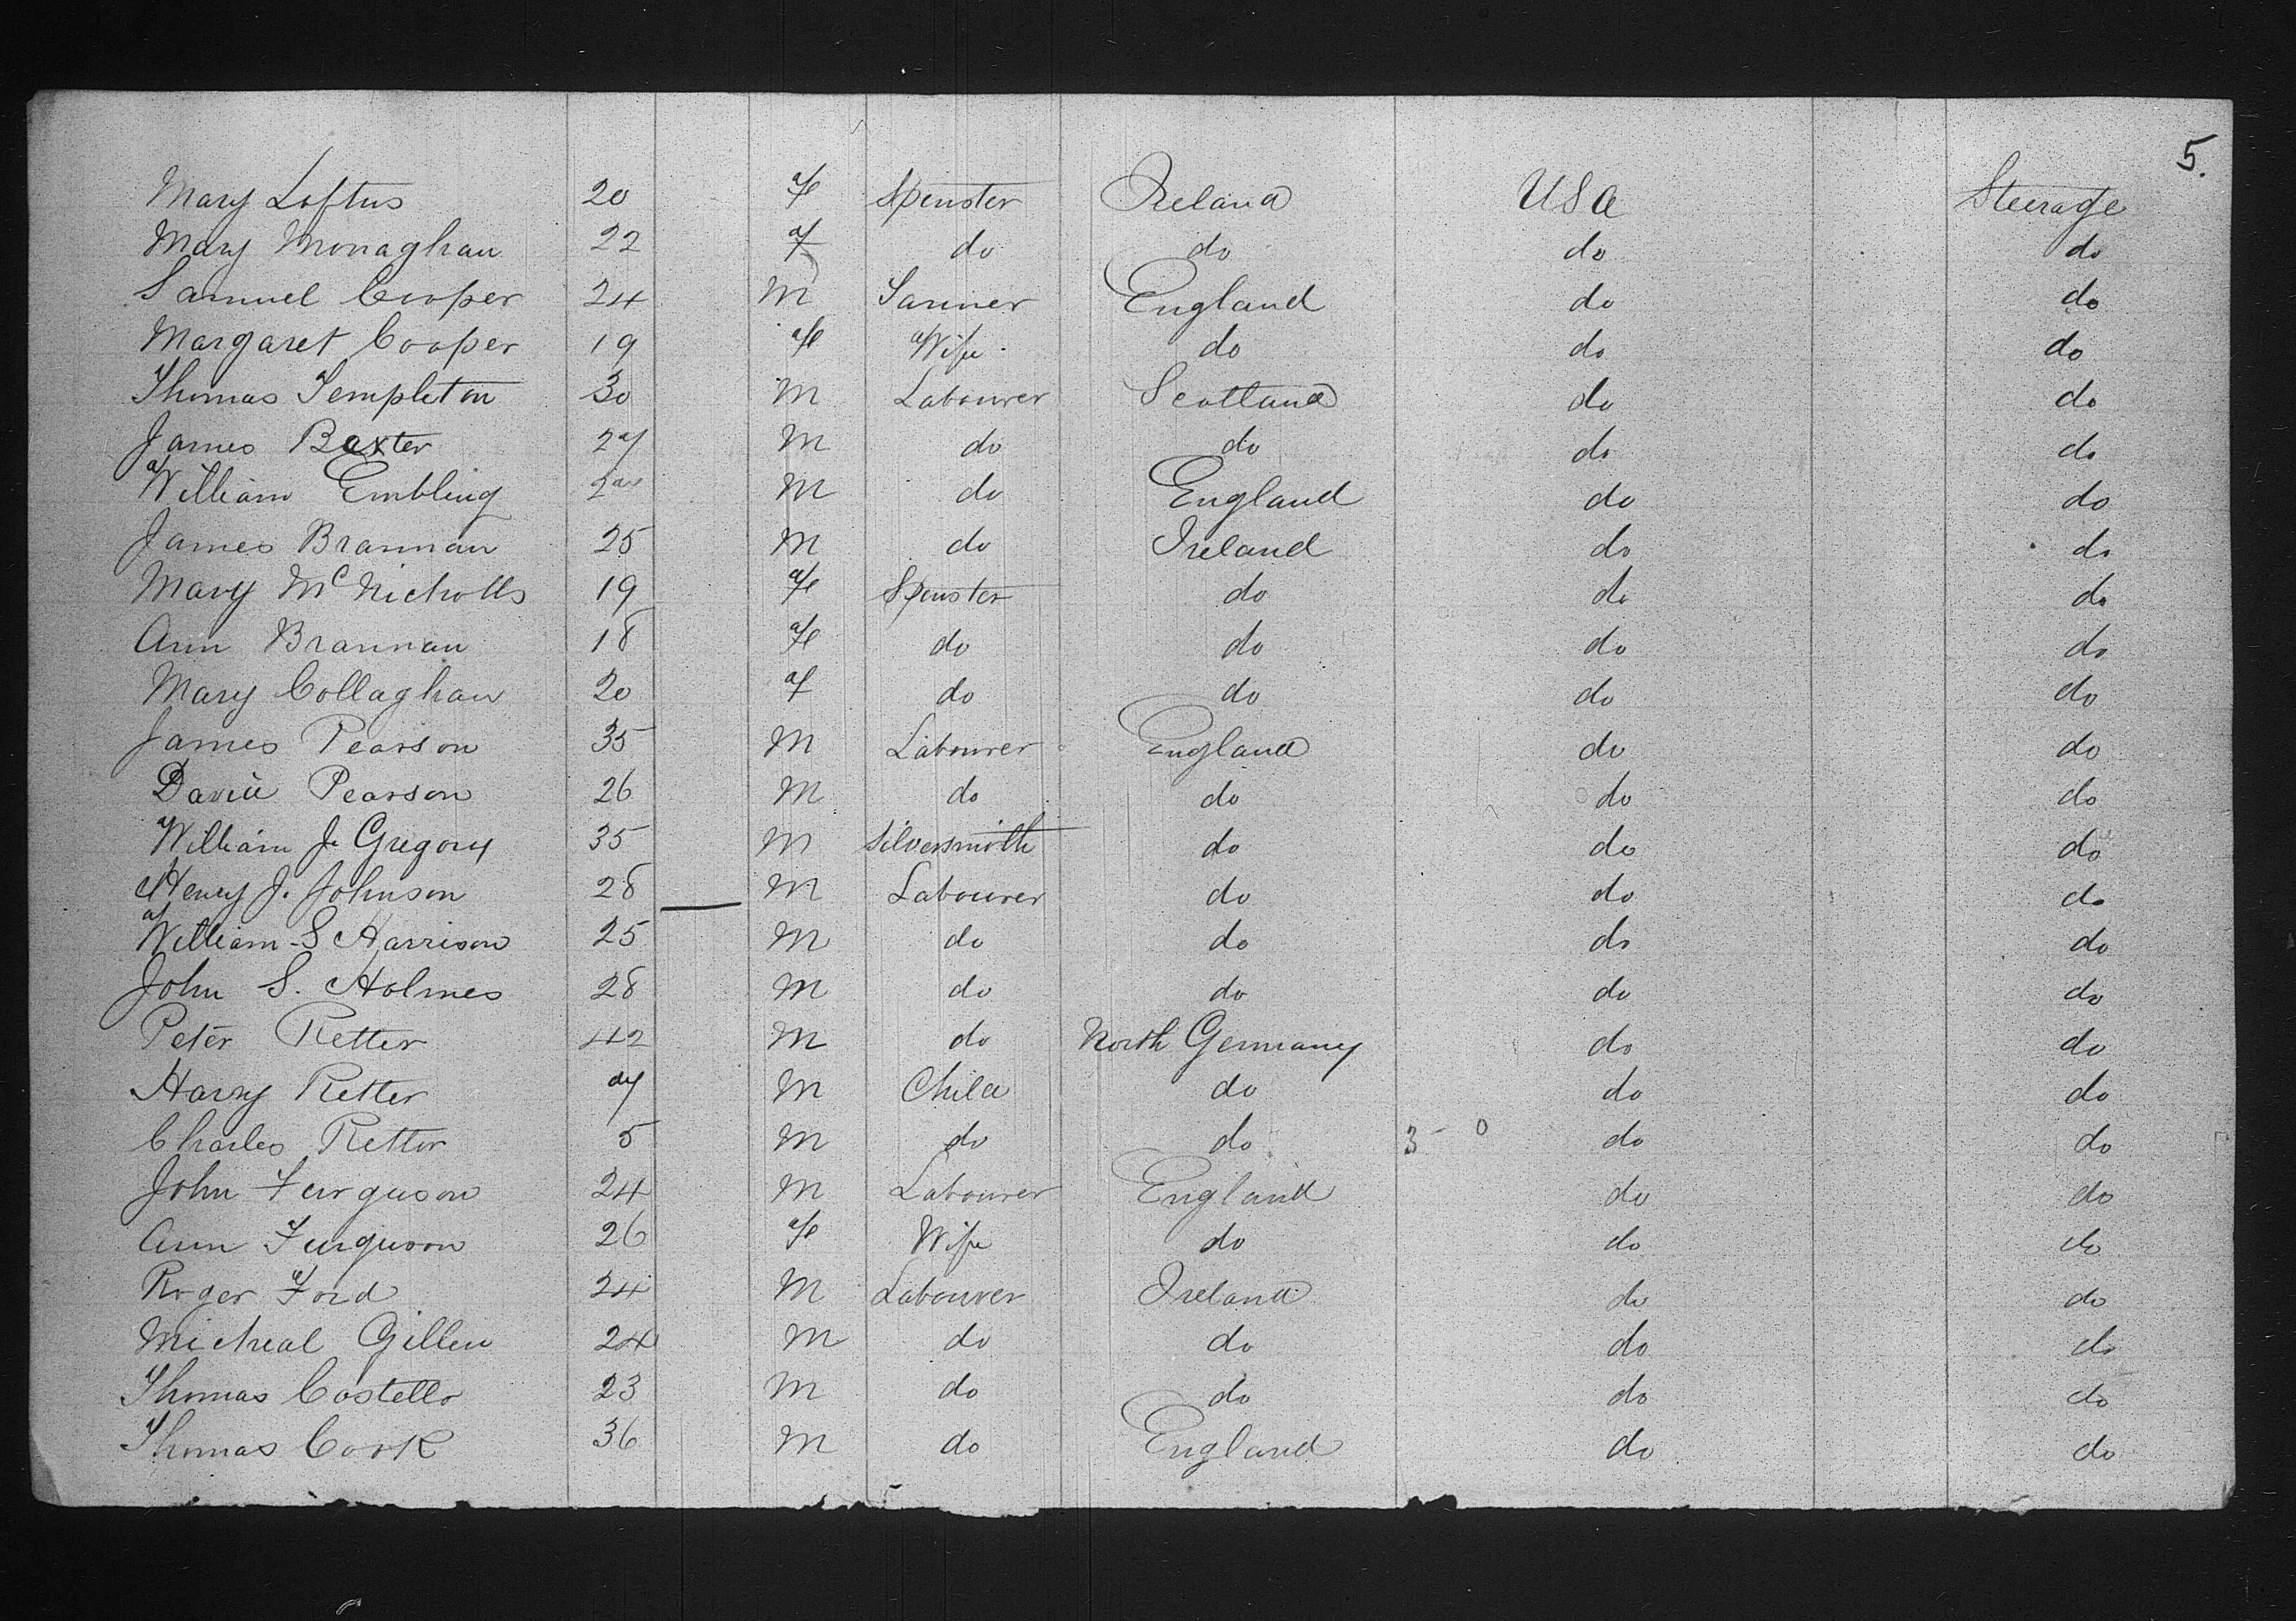 5.
Mary Loftus 20 F Spinster Ireland USA Steerage
Mary Monaghan 22 F do do do do
Samuel Cooper 24 M England do do
Margaret Cooper 19 F Wife do do do
Thomas Templeton 30 M Labourer Scotland do do
James Baxter 27 M do do do do
William Embling M do England do do
James Brannan 25 M do Ireland do do
Mary McNicholls 19 F Spinster do do do
Ann Brannan 18 F do do do do
Mary Collaghan 20 F do do do do
James Pearson 35 M Labourer England do do
David Pearson 26 M do do do do
William J. Gregory 35 M Silversmith do do do
Henry J. Johnson 28 — M Labourer do do do
William S Harrison 25 M do do do do
John S. Holmes 28 M do do do do
Peter Retter 42 M do North Germany do do
Harry Retter 7 M Child do do do
Charles Retter 5 M do do 3 - 0 do do
John Ferguson 24 M Labourer England do do
Ann Ferguson 26 F Wife do do do
Roger Ford 24 M Labourer Ireland do do
Micheal Gillen 24 M do do do do
Thomas Costello 23 M do do do do
Thomas Cook 36 M do England do do